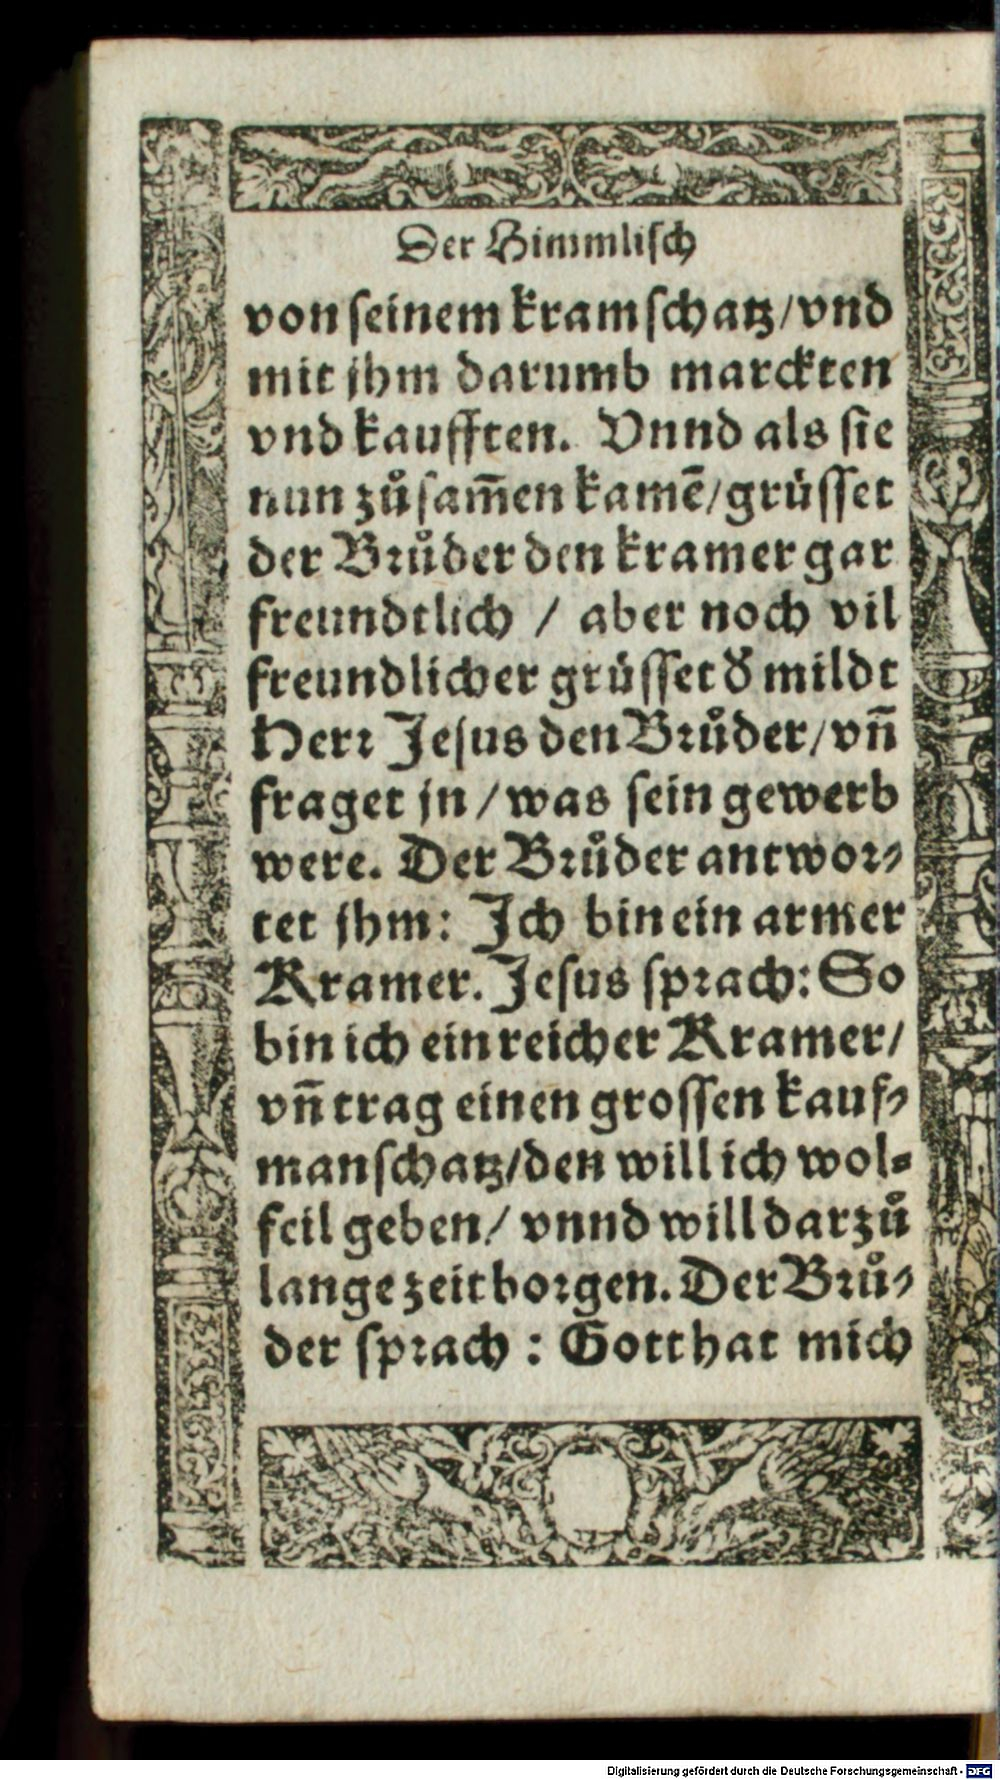 Der Himmlisch
von seinem kramschatz/vnd
mit jhm darumb marckten
vnd kaufften. Vnnd als sie
nun zůsam̄en kamē/grüsset
der Brůder den kramer gar
freundtlich / aber noch vil
freundlicher grüsset d̕ mildt
Herr Jesus den Brůder/vn̄
fraget jn/was sein gewerb
were. Der Brůder antwor-
tet jhm: Ich bin ein armer
Kramer. Jesus sprach: So
bin ich ein reicher Kramer/
vn̄ trag einen grossen kauf-
manschatz/den will ich wol-
feil geben/ vnnd will darzů
lange zeit borgen. Der Brů-
der sprach : Gott hat mich
Digitalisierung gefördert durch die Deutsche Forschungsgemeinschaft - DFG